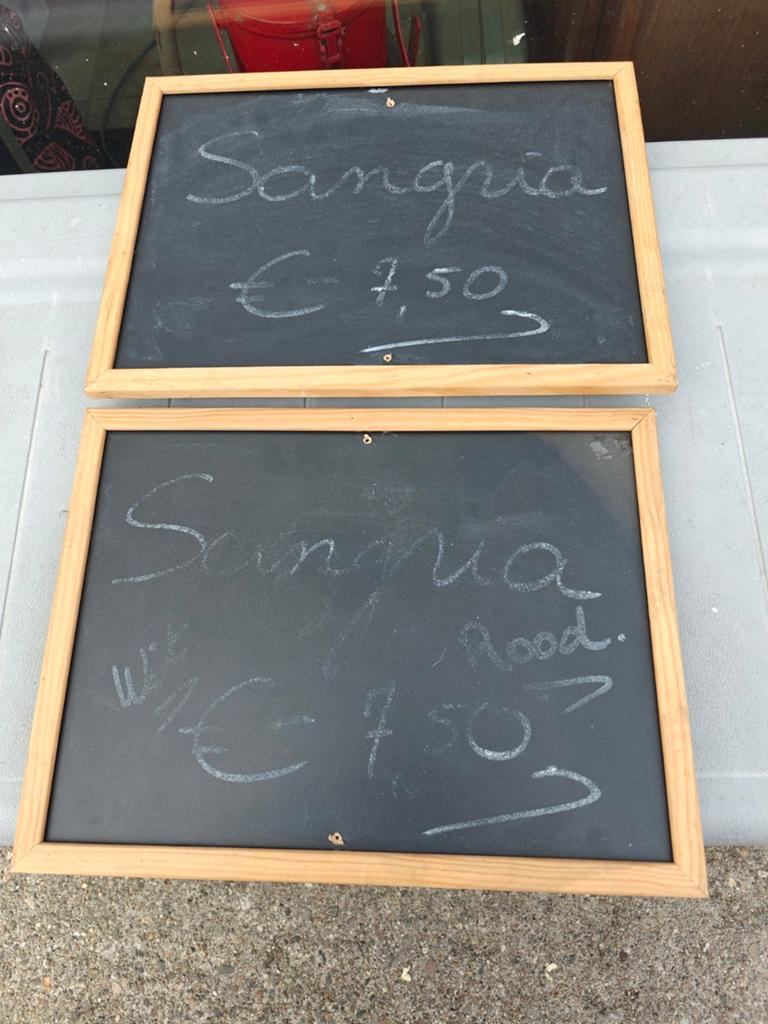 Sangria
€ 7,50
Sangria
Wit Rood.
€ 7,50